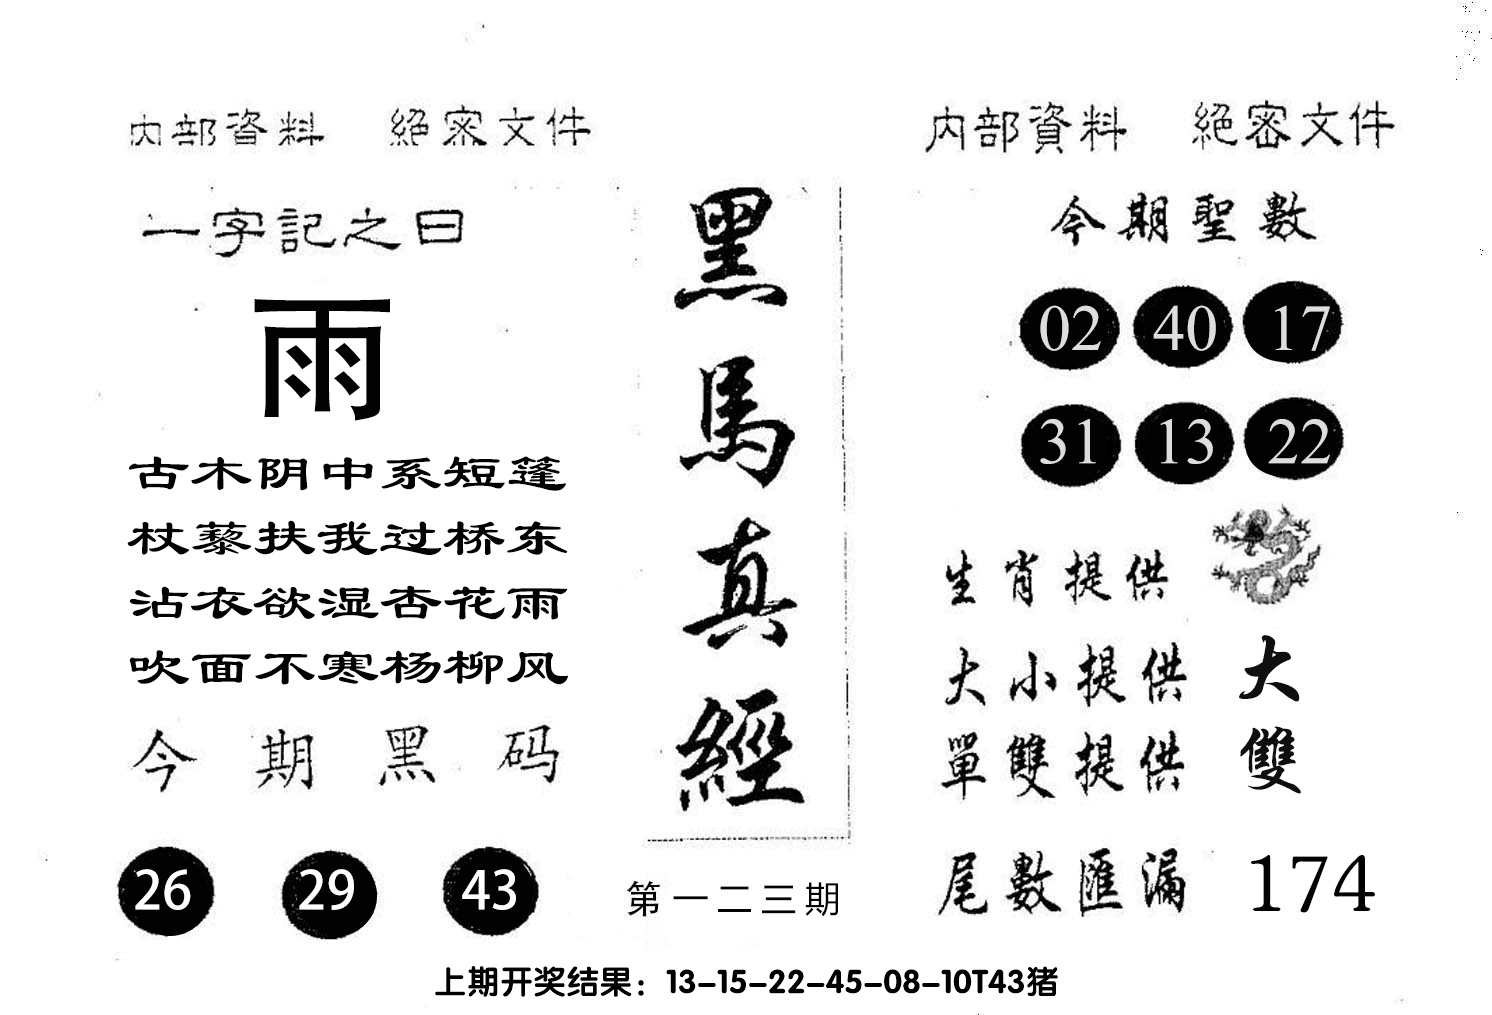 内部資料 絕密文件
一字記之曰
雨
古木阴中系短篷
杖藜扶我过桥东
沾衣欲湿杏花雨
吹面不寒杨柳风
今期黑码
26 29 43
黑馬真經
第一二三期
内部資料 絕密文件
今期聖數
02 40 17
31 13 22
生肖提供
大小提供 大
單雙提供 雙
尾數匯漏 174
上期开奖结果：13-15-22-45-08-10T43猪